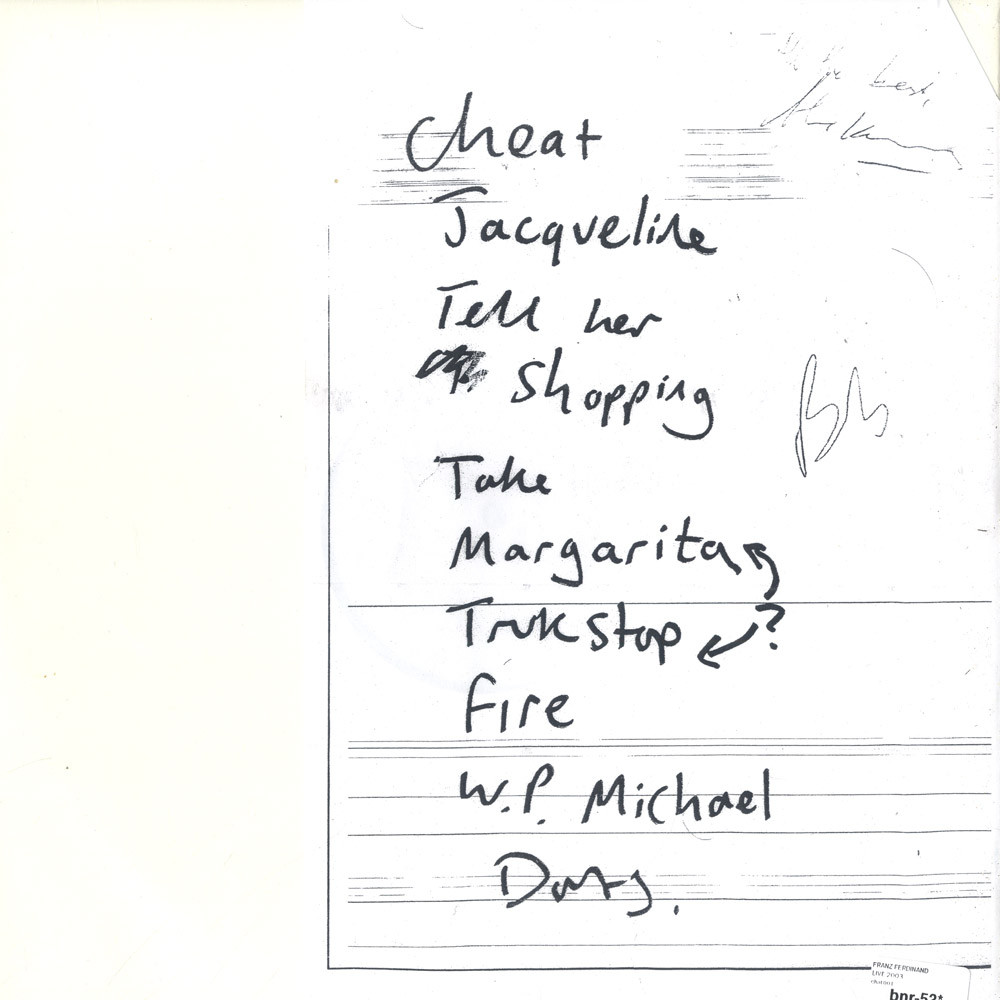 best,
Cheat
Jacqueline
Tell her
Shopping
Take
Margarita
Trukstop ?
Fire
W.P. Michael
Darts.
FRANZ FERDINAND
LIVE 2003
bnr-52*